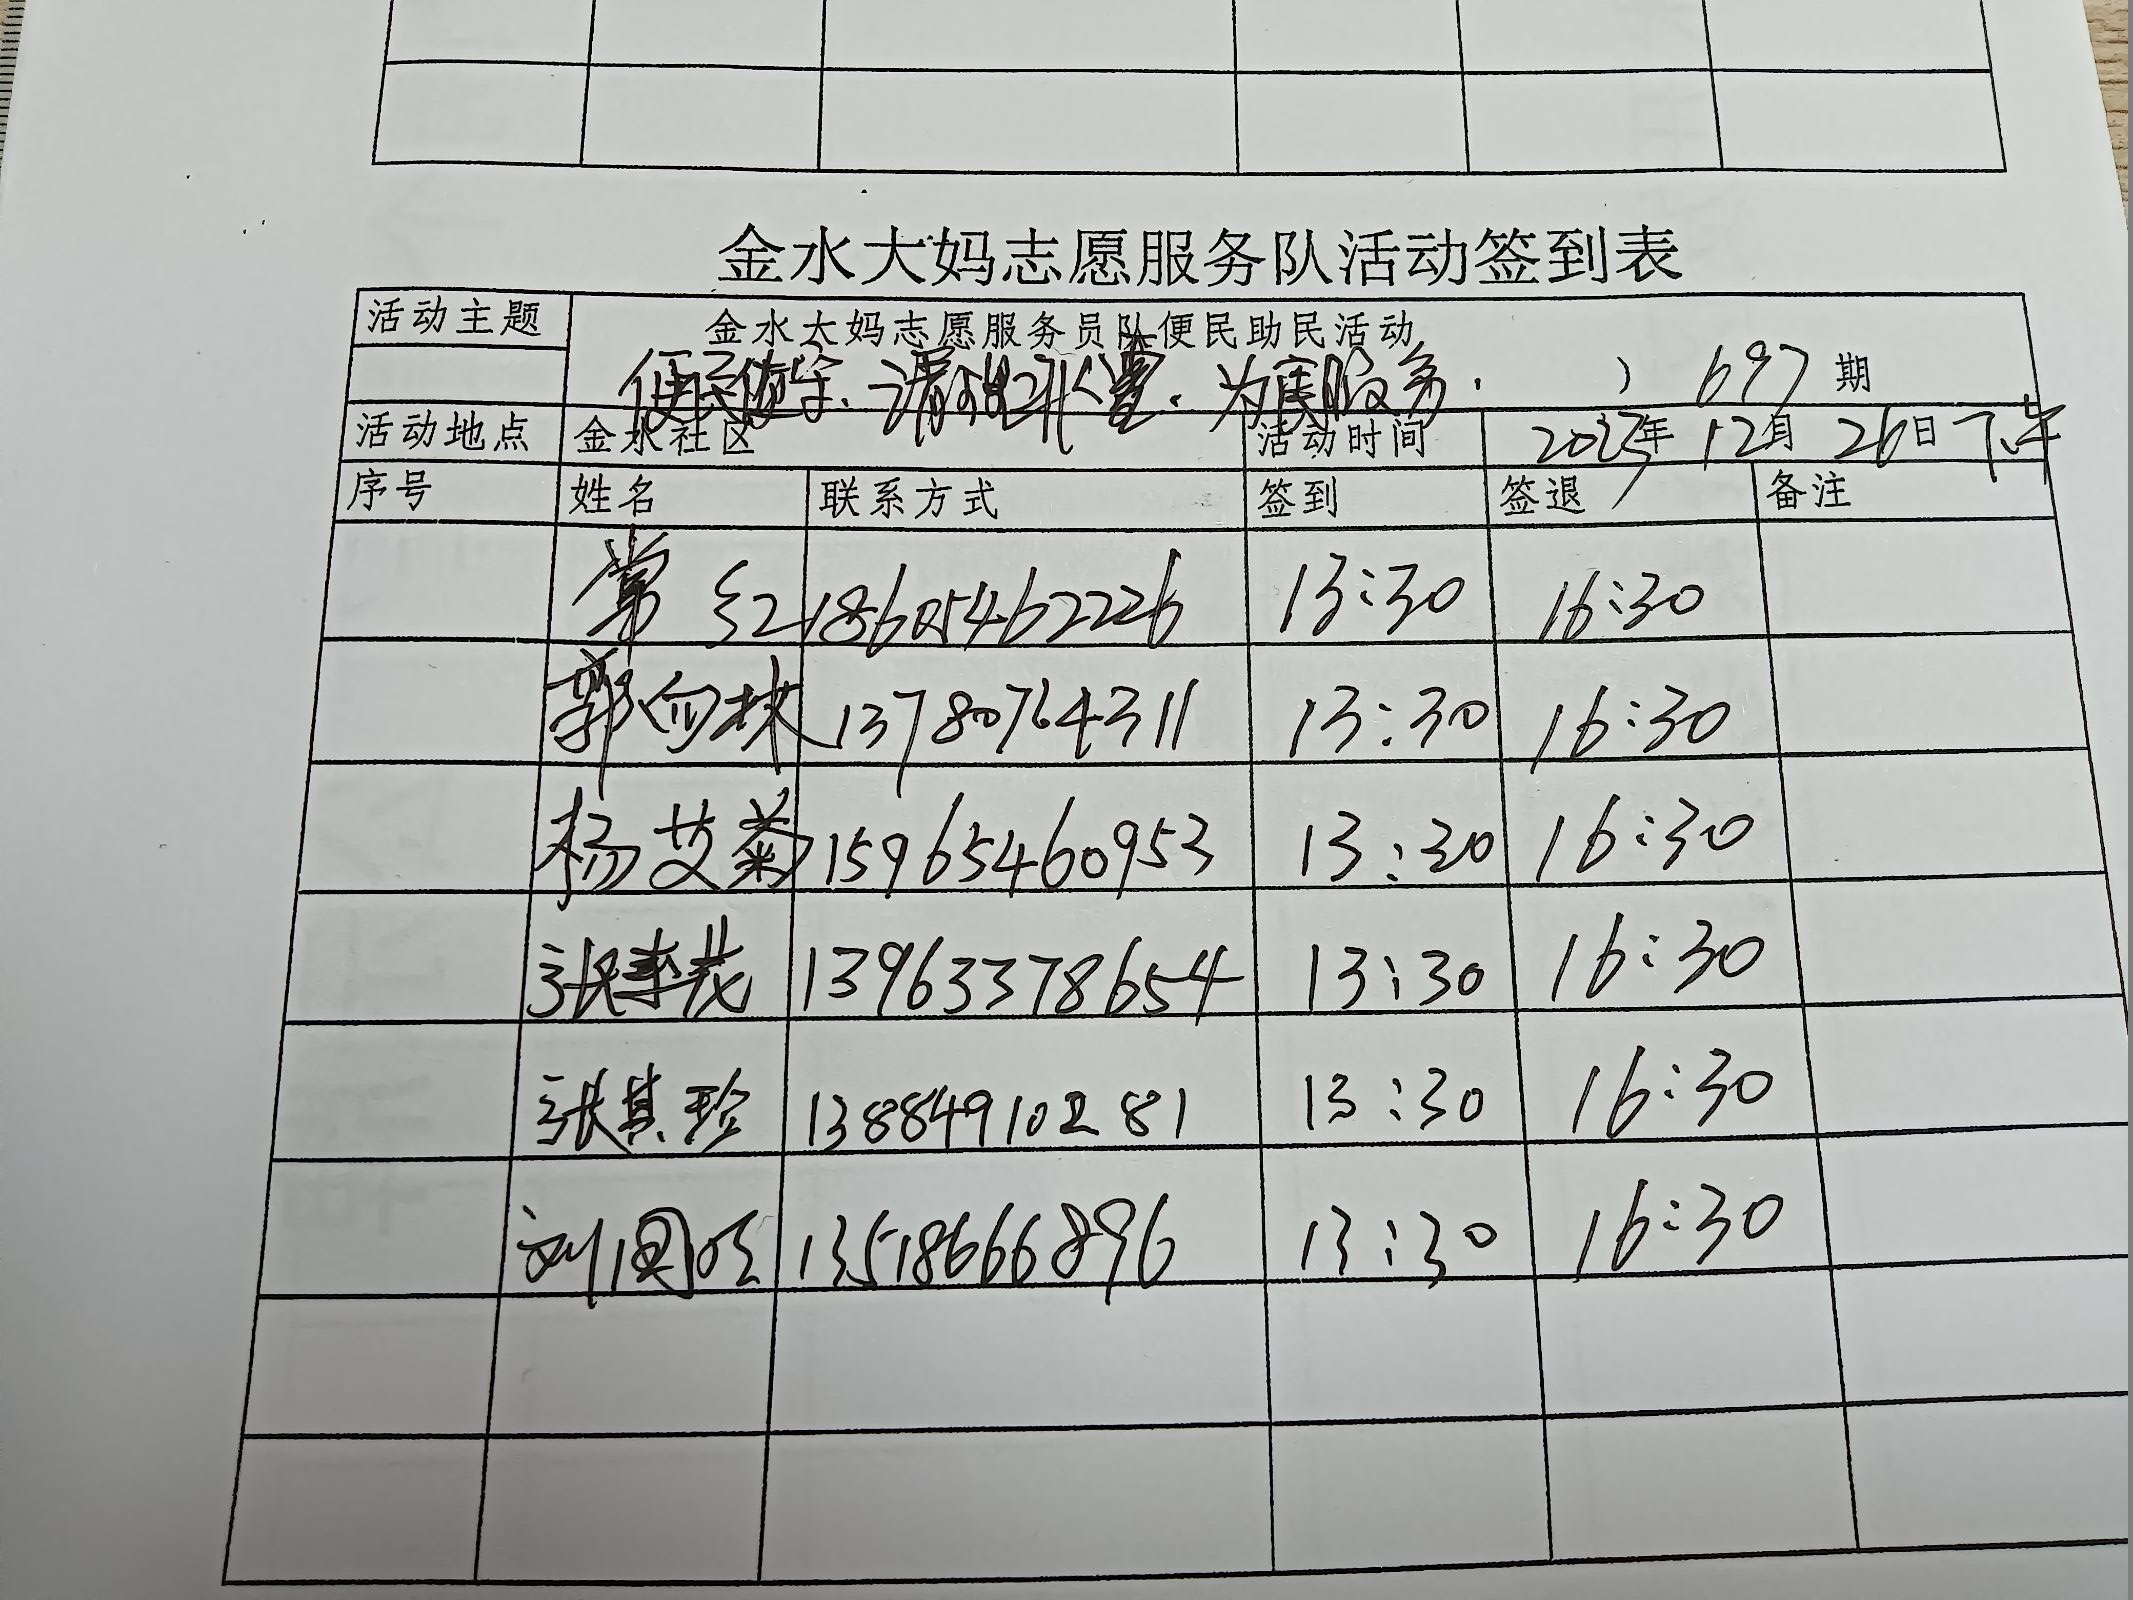 金水大妈志愿服务队活动签到表
活动主题 金水大妈志愿服务员队便民助民活动
便民 为 服务. ) 697 期
活动地点 金水社区 活动时间 年 12月 26日 下午
序号 姓名 联系方式 签到 签退 备注
常红 18605462226 13:30 16:30
郭向 13780764311 13:30 16:30
杨艾菊 15965460953 13:30 16:30
张 茂 13963378654 13:30 16:30
张其珍 13884910281 13:30 16:30
刘 13518666896 13:30 16:30